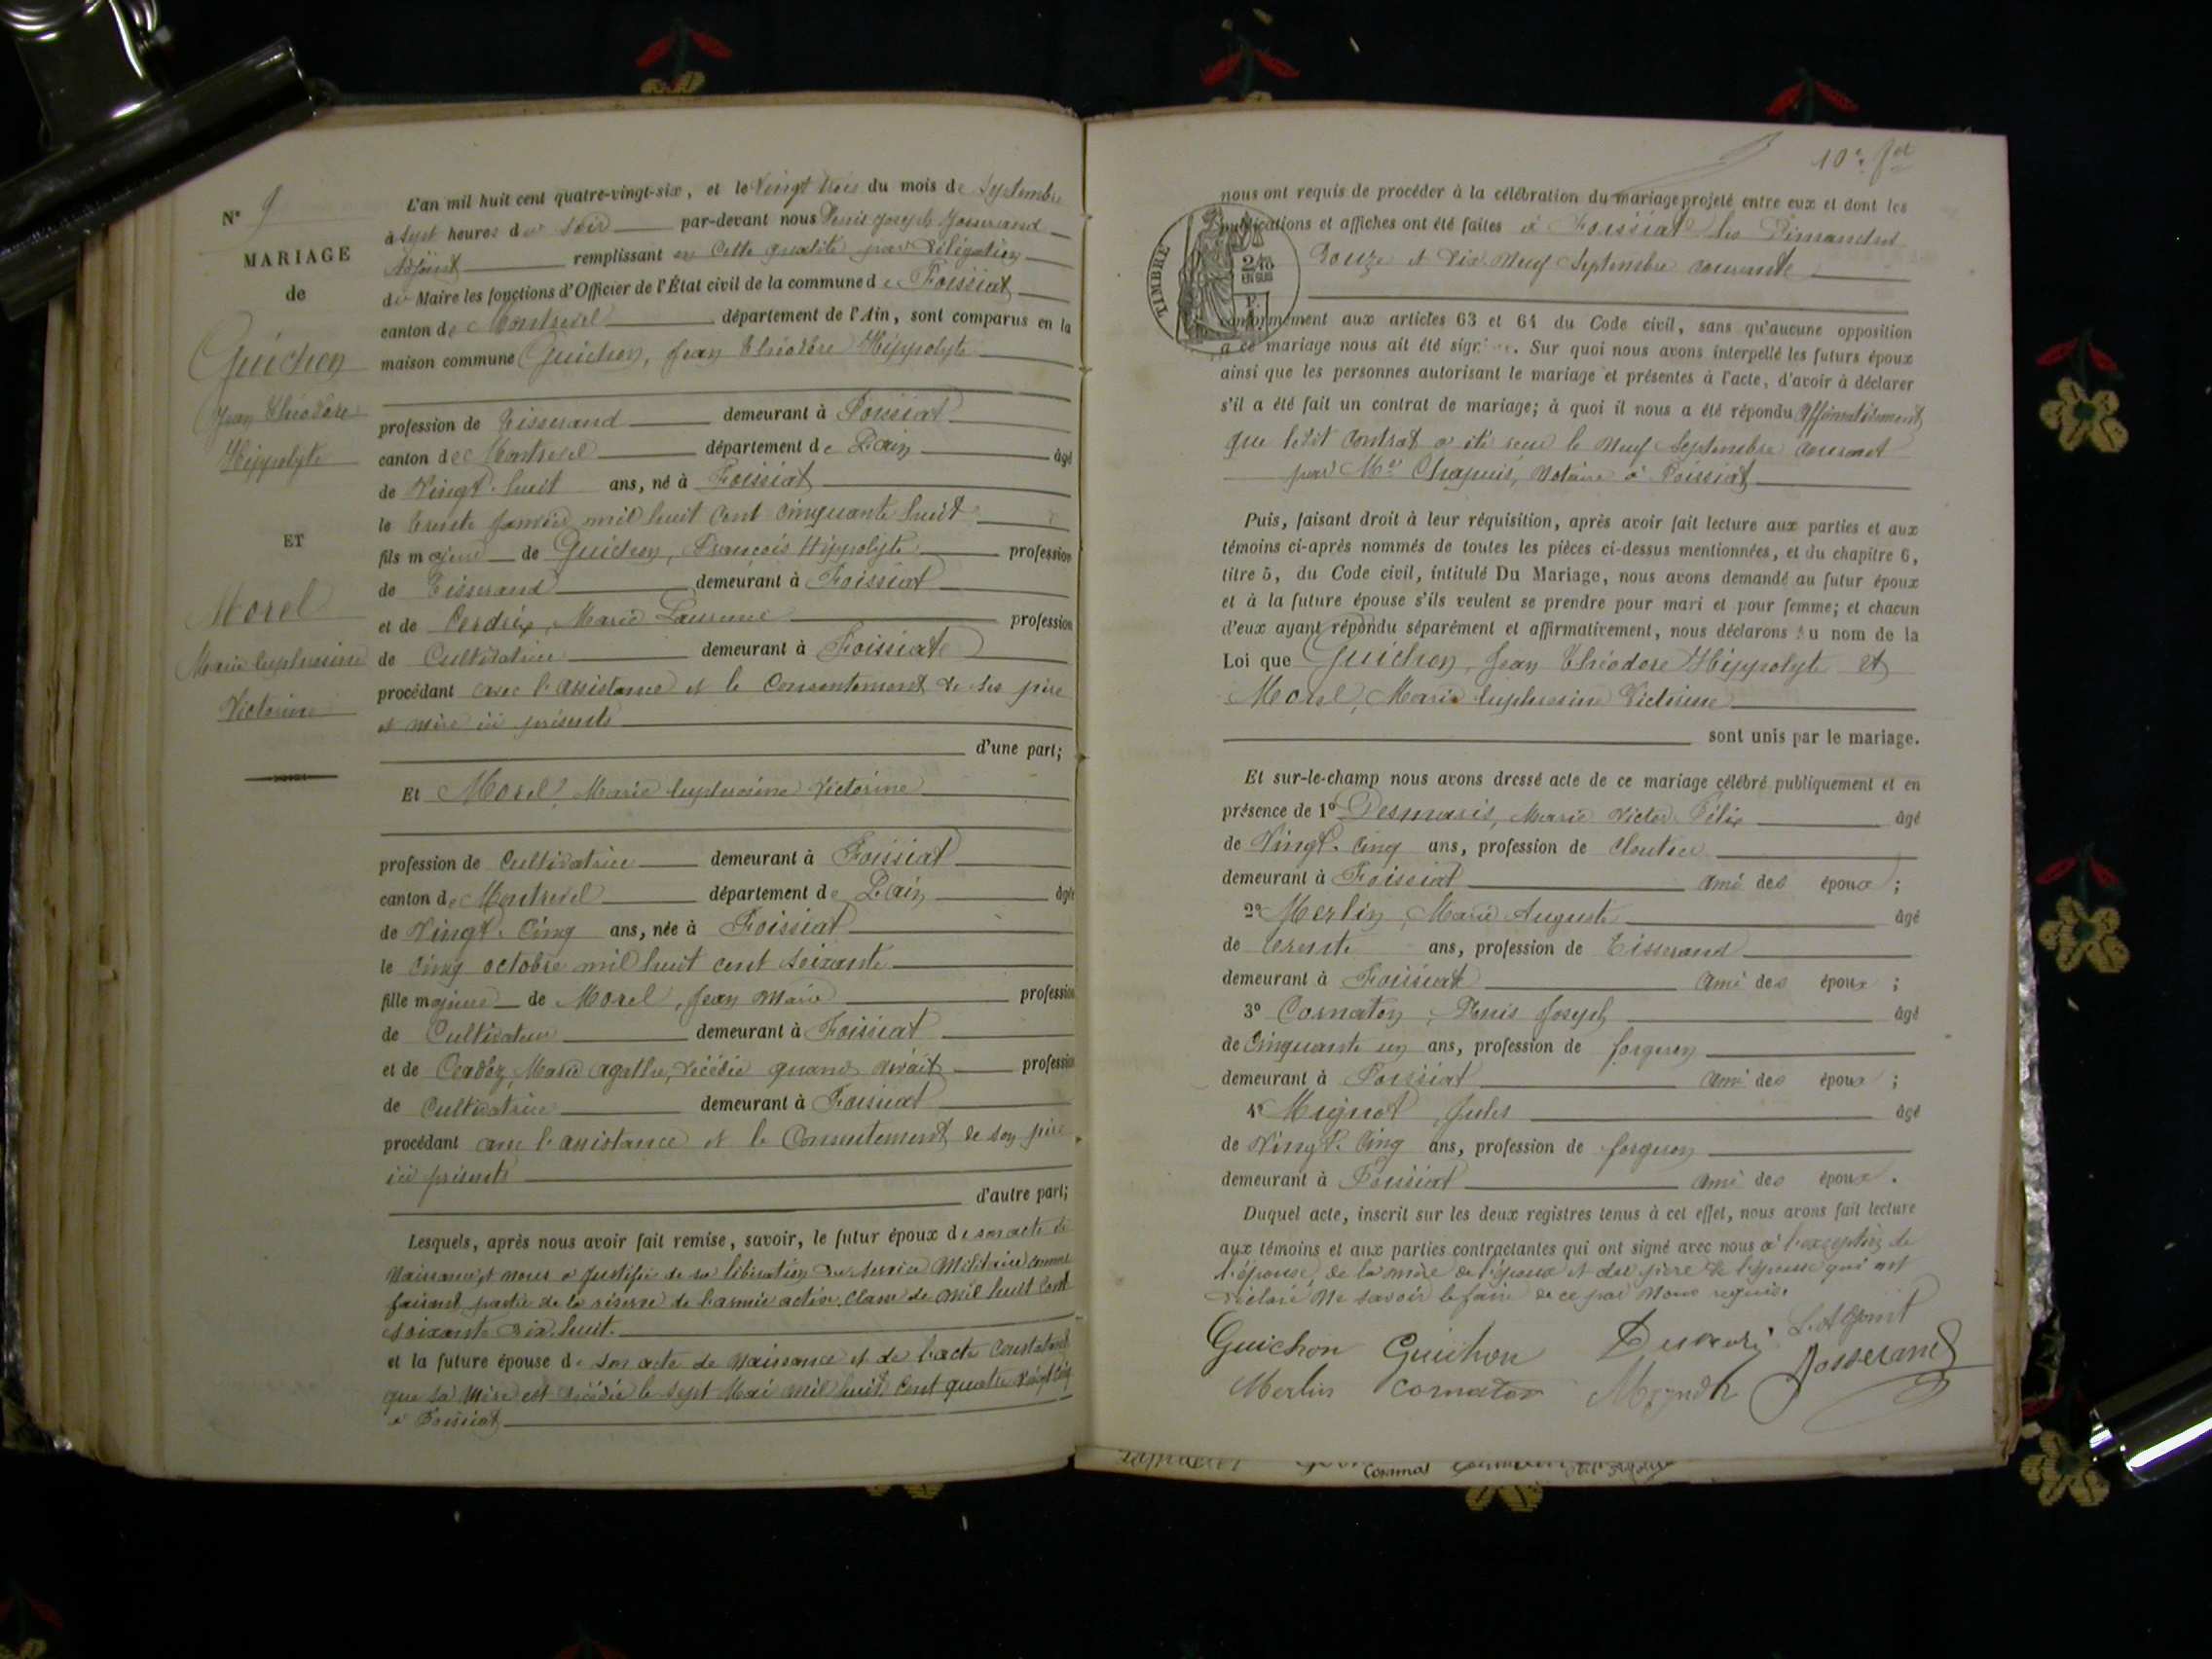 N° 9
MARIAGE
de
Guichon
Jean Théodore
Hippolyte
ET
Morel
Marie Euphrosine
Victorine
L'an mil huit cent quatre-vingt-six, et le Vingt trois du mois de Septembre
à Sept heures du Soir par-devant nous Denis Joseph Josserand
Adjoint remplissant en Cette qualité par Délégation
du Maire les fonctions d'Officier de l'État civil de la commune de Foissiat
canton de Montrevel département de l'Ain, sont comparus en la
maison commune Guichon, Jean Théodore Hippolyte
profession de Tisserand demeurant à Foissiat
canton de Montrevel département de L'ain âgé
de Vingt-huit ans, né à Foissiat
le trente Janvier mil huit Cent Cinquante huit
fils majeur de Guichon, François Hippolyte profession
de Tisserand demeurant à Foissiat
et de Perdrix, Marie Laurence profession
de Cultivatrice demeurant à Foissiat
procédant avec l'assistance et le Consentement de ses père
et mère ici présents
d'une part;
Et Morel, Marie Euphrosine Victorine
profession de Cultivatrice demeurant à Foissiat
canton de Montrevel département de L'ain âgée
de Vingt-Cinq ans, née à Foissiat
le Cinq octobre mil huit cent Soixante
fille majeure de Morel, Jean Marie profession
de Cultivateur demeurant à Foissiat
et de Marie agathe, décédée quand vivait profession
de Cultivatrice demeurant à Foissiat
procédant avec l'assistance et le Consentement de son père
ici présent
d'autre part;
Lesquels, après nous avoir fait remise, savoir, le futur époux de son acte de
Naissance et nous a justifié de sa libération du Service Militaire comme
faisant partie de la réserve de l'armée active, Classe de mil huit Cent
soixante dix-huit.
et la future épouse de son acte de Naissance et de l'acte Constatant
que sa Mère est décédée le Sept Mai mil huit Cent quatre vingt Cinq
à Foissiat
10e ft
nous ont requis de procéder à la célébration du mariage projeté entre eux et dont les
publications et affiches ont été faites à Foissiat les Dimanches
Douze et Dix Neuf Septembre courant
TIMBRE
conformément aux articles 63 et 64 du Code civil, sans qu'aucune opposition
à ce mariage nous ait été signifiée. Sur quoi nous avons interpellé les futurs époux
ainsi que les personnes autorisant le mariage et présentes à l'acte, d'avoir à déclarer
s'il a été fait un contrat de mariage; à quoi il nous a été répondu Affirmativement
que ledit Contrat a été reçu le Neuf Septembre Courant
par Me Chapuis, Notaire à Foissiat
Puis, faisant droit à leur réquisition, après avoir fait lecture aux parties et aux
témoins ci-après nommés de toutes les pièces ci-dessus mentionnées, et du chapitre 6,
titre 5, du Code civil, intitulé Du Mariage, nous avons demandé au futur époux
et à la future épouse s'ils veulent se prendre pour mari et pour femme; et chacun
d'eux ayant répondu séparément et affirmativement, nous déclarons au nom de la
Loi que Guichon, Jean Théodore Hippolyte et
Morel, Marie Euphrosine Victorine
sont unis par le mariage.
Et sur-le-champ nous avons dressé acte de ce mariage célébré publiquement et en
présence de 1° Desmaris, Marie Victor Félix âgé
de Vingt-Cinq ans, profession de Cloutier
demeurant à Foissiat ami des époux ;
2° Merlin, Marie Auguste âgé
de trente ans, profession de Tisserand
demeurant à Foissiat Ami des époux ;
3° Cornaton, Denis Joseph âgé
de Cinquante un ans, profession de forgeron
demeurant à Foissiat Ami des époux ;
4° Mignot, Jules âgé
de Vingt-Cinq ans, profession de forgeron
demeurant à Foissiat Ami des époux.
Duquel acte, inscrit sur les deux registres tenus à cet effet, nous avons fait lecture
aux témoins et aux parties contractantes qui ont signé avec nous à l'exception de
l'épouse, de la mère de l'époux et du père de l'épouse qui ont
déclaré Ne savoir le faire de ce par Nous requis.
Guichon Guichon L'Adjoint
Merlin Cornaton Josserand